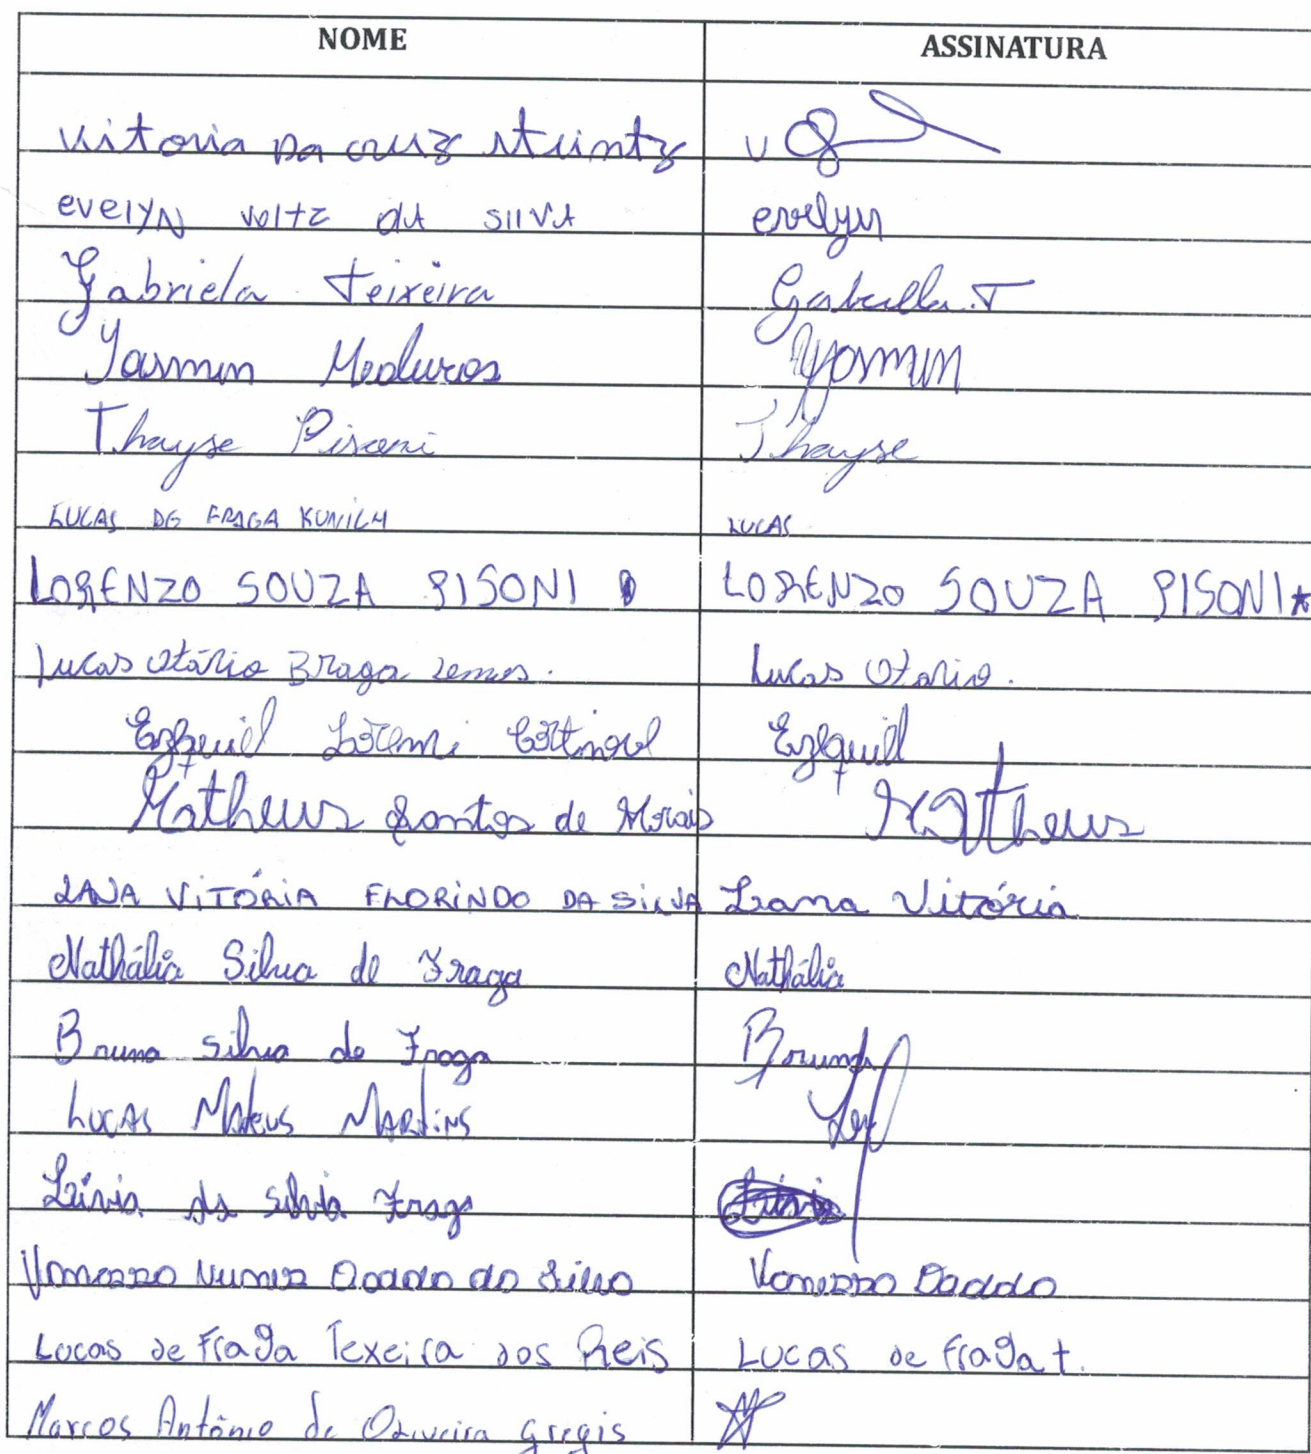 NOME ASSINATURA
Vitoria Da cruz Steintz V
evelyn voltz da silva evelyn
Gabriela Teixeira Gabriella.T
Yasmin Medeiros Yasmin
Thayse Pisoni Thayse
LUCAS DE FRAGA KUNICH LUCAS
LORENZO SOUZA PISONI LORENZO SOUZA PISONI
Lucas Otávio Braga Lemes. Lucas Otavio.
Ezequiel Ezequiel
Matheus Santos de Morais Matheus
LANA VITÓRIA FLORINDO DA SILVA Lana Vitória
Nathália Silva de Fraga Nathália
Bruna Silva de Fraga Bruna
Lucas Mateus Martins
Lívia da Silvia Fraga Lívia
Vanessa Nunes Daddo da Silva Vanessa Daddo
Lucas de Fraga Texeira dos Reis Lucas de Fraga t.
Marcos Antônio de Oliveira Gregis